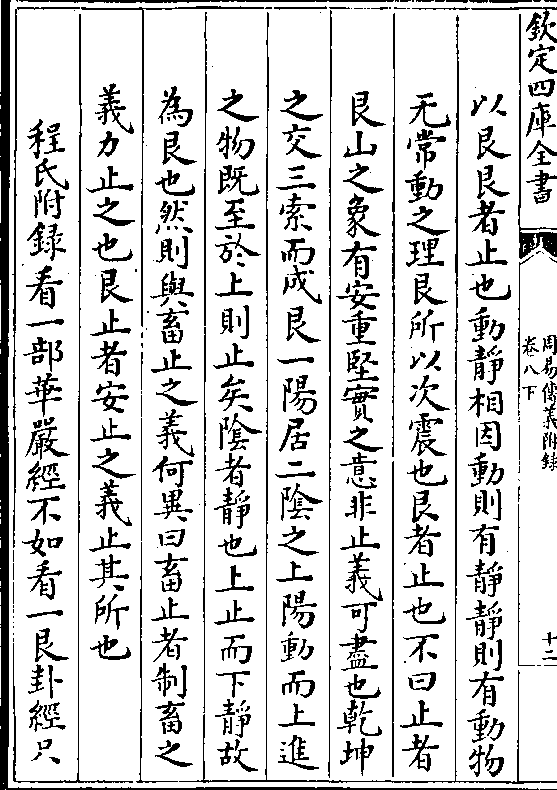 欽定四庫全書
周易傳義附錄
卷八下
十二
以艮艮者止也動靜相因動則有靜靜則有動物
无常動之理艮所以次震也艮者止也不曰止者
艮山之象有安重堅實之意非止義可盡也乾坤
之交三索而成艮一陽居二陰之上陽動而上進
之物既至於上則止矣陰者靜也上止而下靜故
為艮也然則與畜止之義何異曰畜止者制畜之
義力止之也艮止者安止之義止其所也
程氏附錄看一部華嚴經不如看一艮卦經只